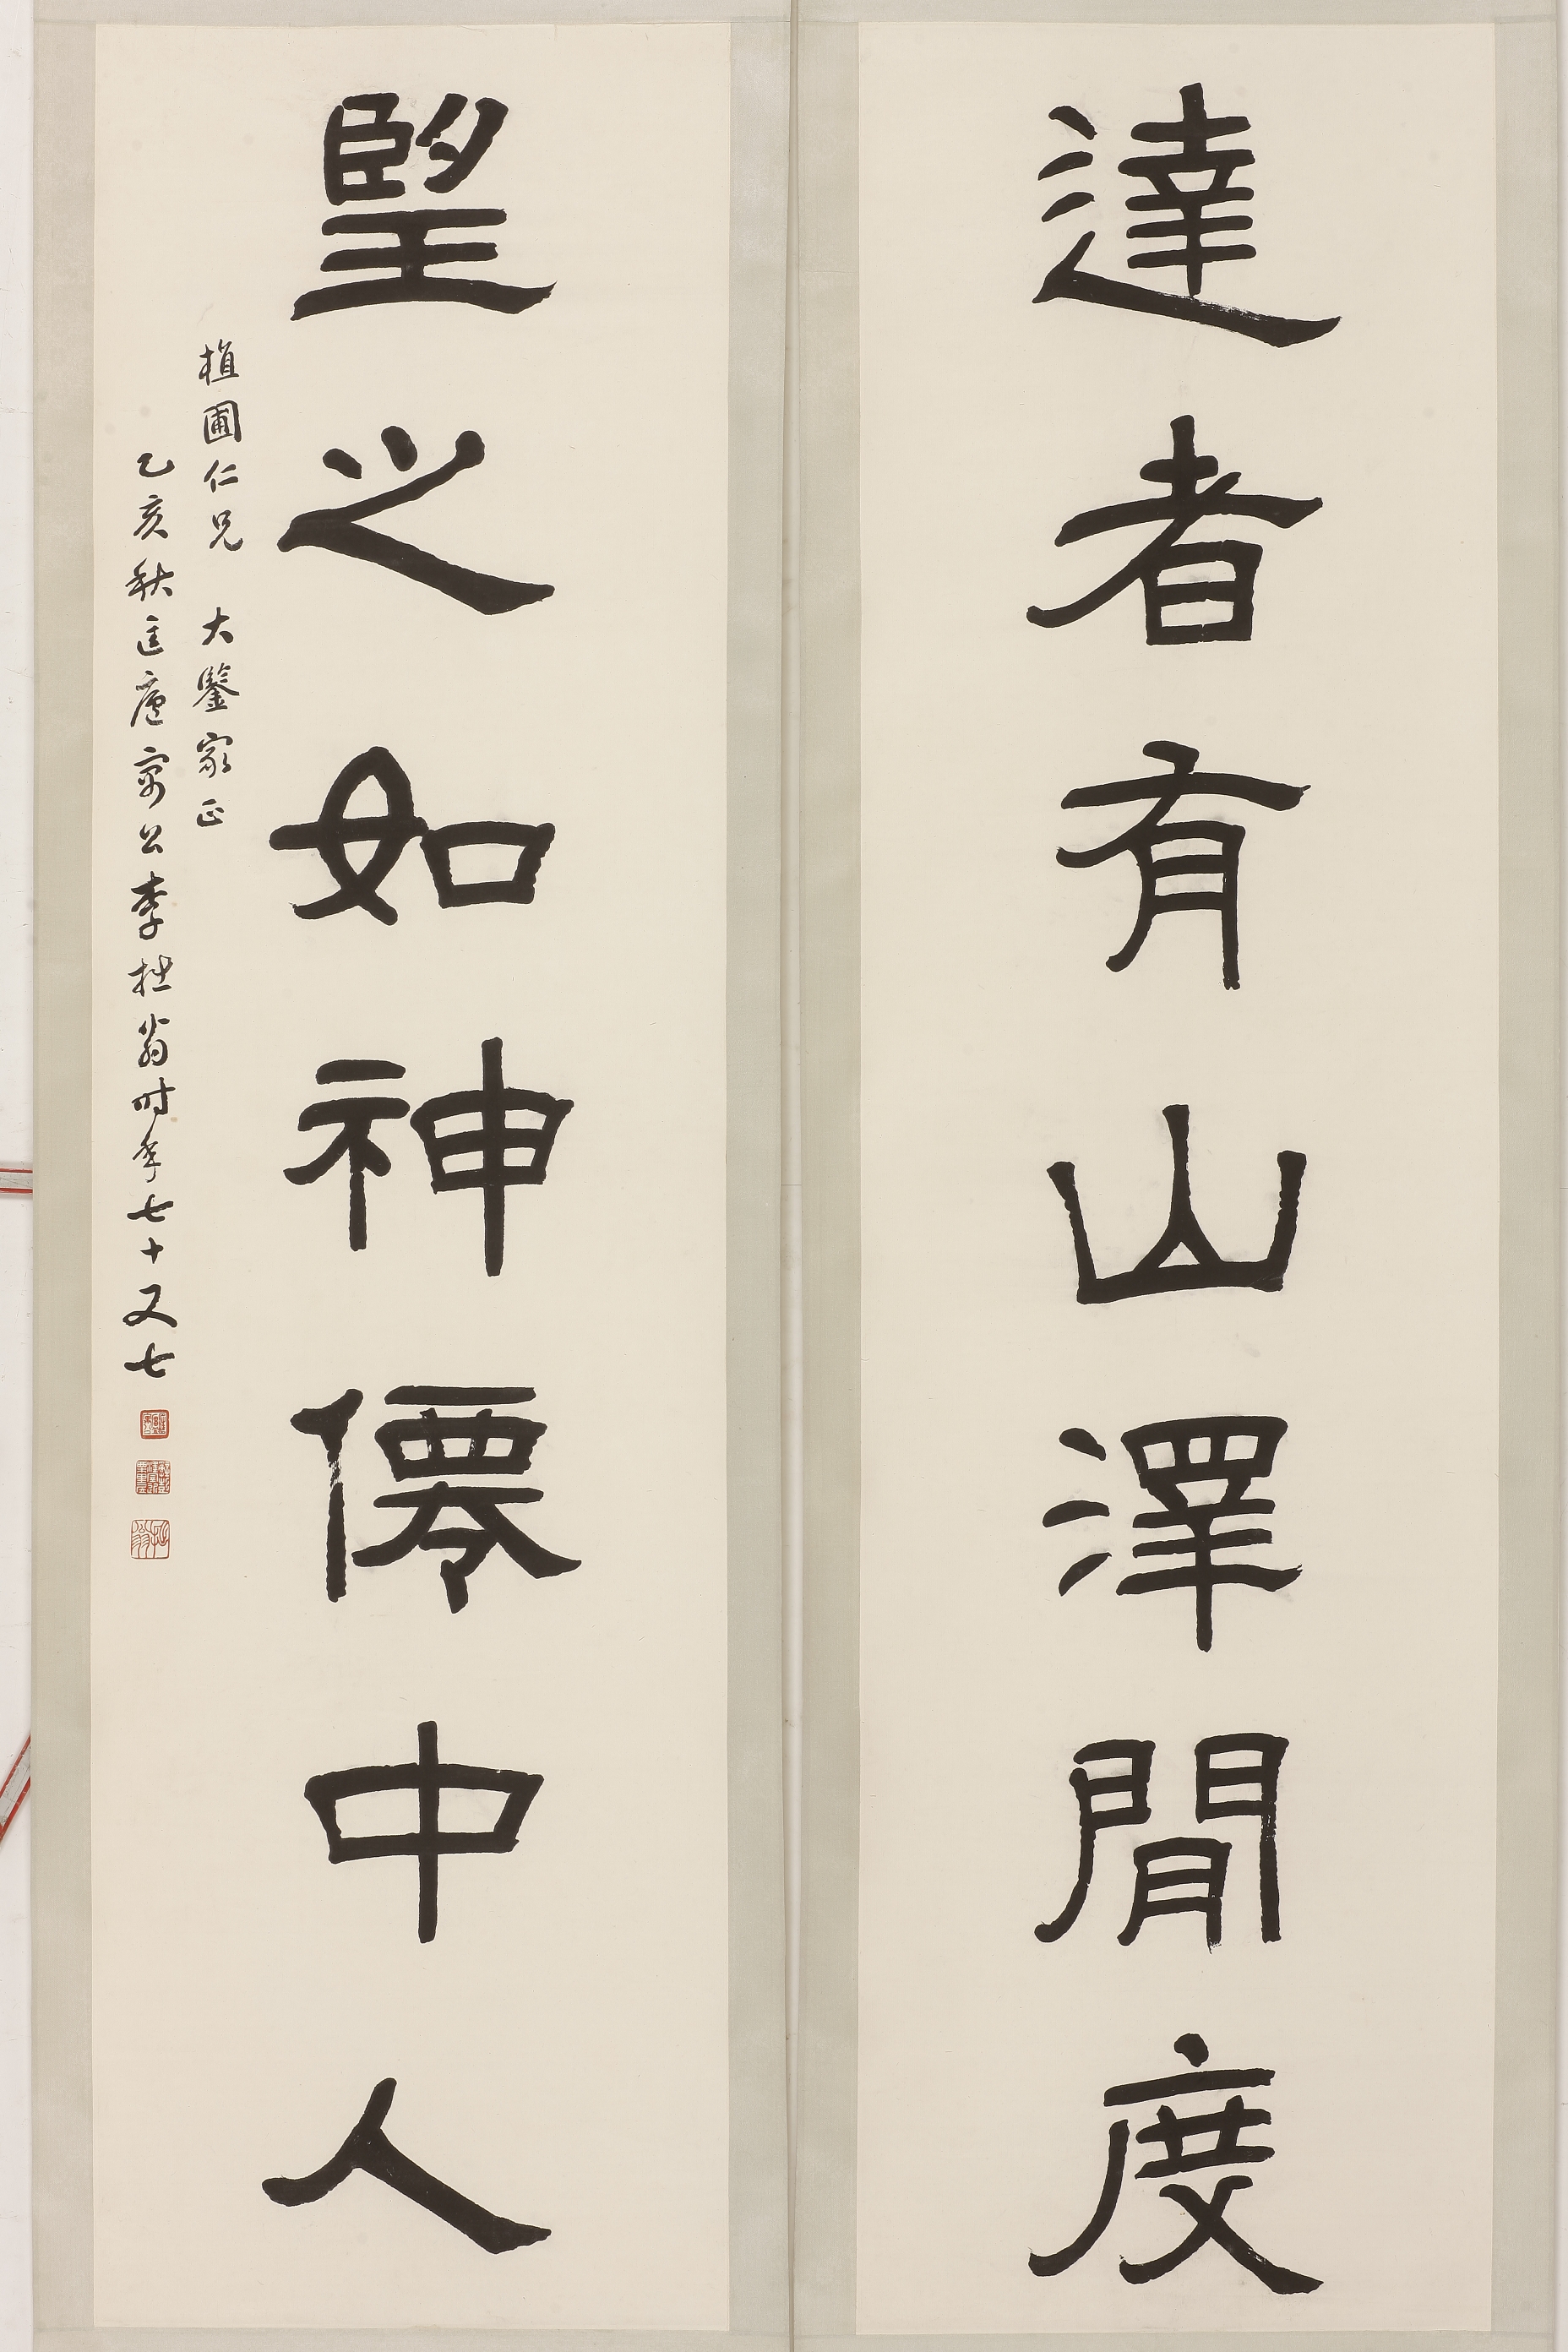 達者有山澤閒度
望之如神僊中人
植圃仁兄 大鑒家正
乙亥秋匡廬寓公李拙翁時年七十又七
拙翁